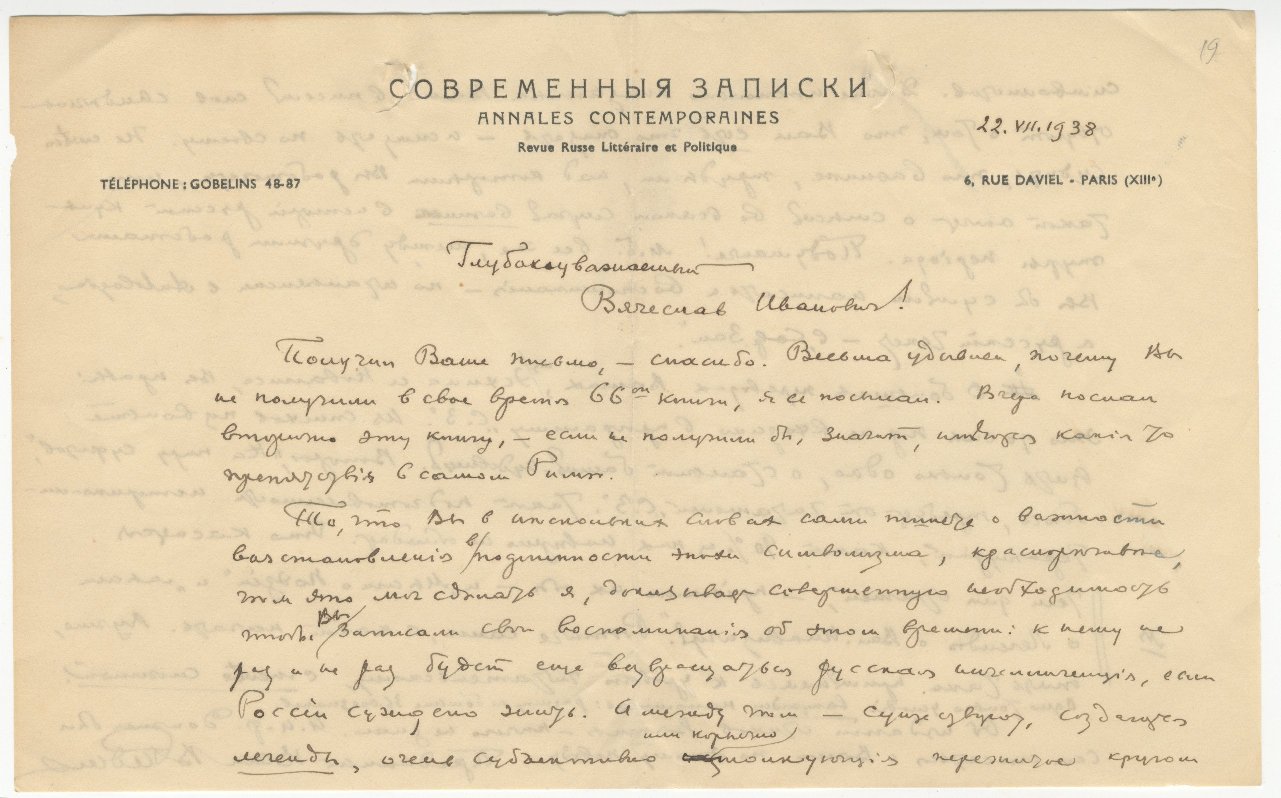 19
СОВРЕМЕННЫЯ ЗАПИСКИ
ANNALES CONTEMPORAINES
Revue Russe Littéraire et Politique
22.VII.1938
TÉLÉPHONE : GOBELINS 48-87
6, RUE DAVIEL - PARIS (XIIIᵉ)
Глубокоуважаемый
Вячеслав Иванович!
Получил Ваше письмо, – спасибо. Весьма удивлен, почему Вы
не получили в свое время 66ой книги, я ее посылал. Вчера послал
вторично эту книгу, – если не получили бы, значит, имеются какiя то
препятствiя в самом Риме.
То, что Вы в нескольких словах сами пишете о важности
возстановленiя в подлинности эпохи символизма, красноречивее,
чем это мог сделать я, доказывает совершенную необходимость
чтобы Вы записали свои воспоминанiя об этом времени: к нему не
раз и не раз будет еще возвращаться русская интеллигенцiя, если
Россiи суждено жить. А между тем – существуют, создаются
или корыстно
легенды, очень субъективно толкующiя пережитое кругом